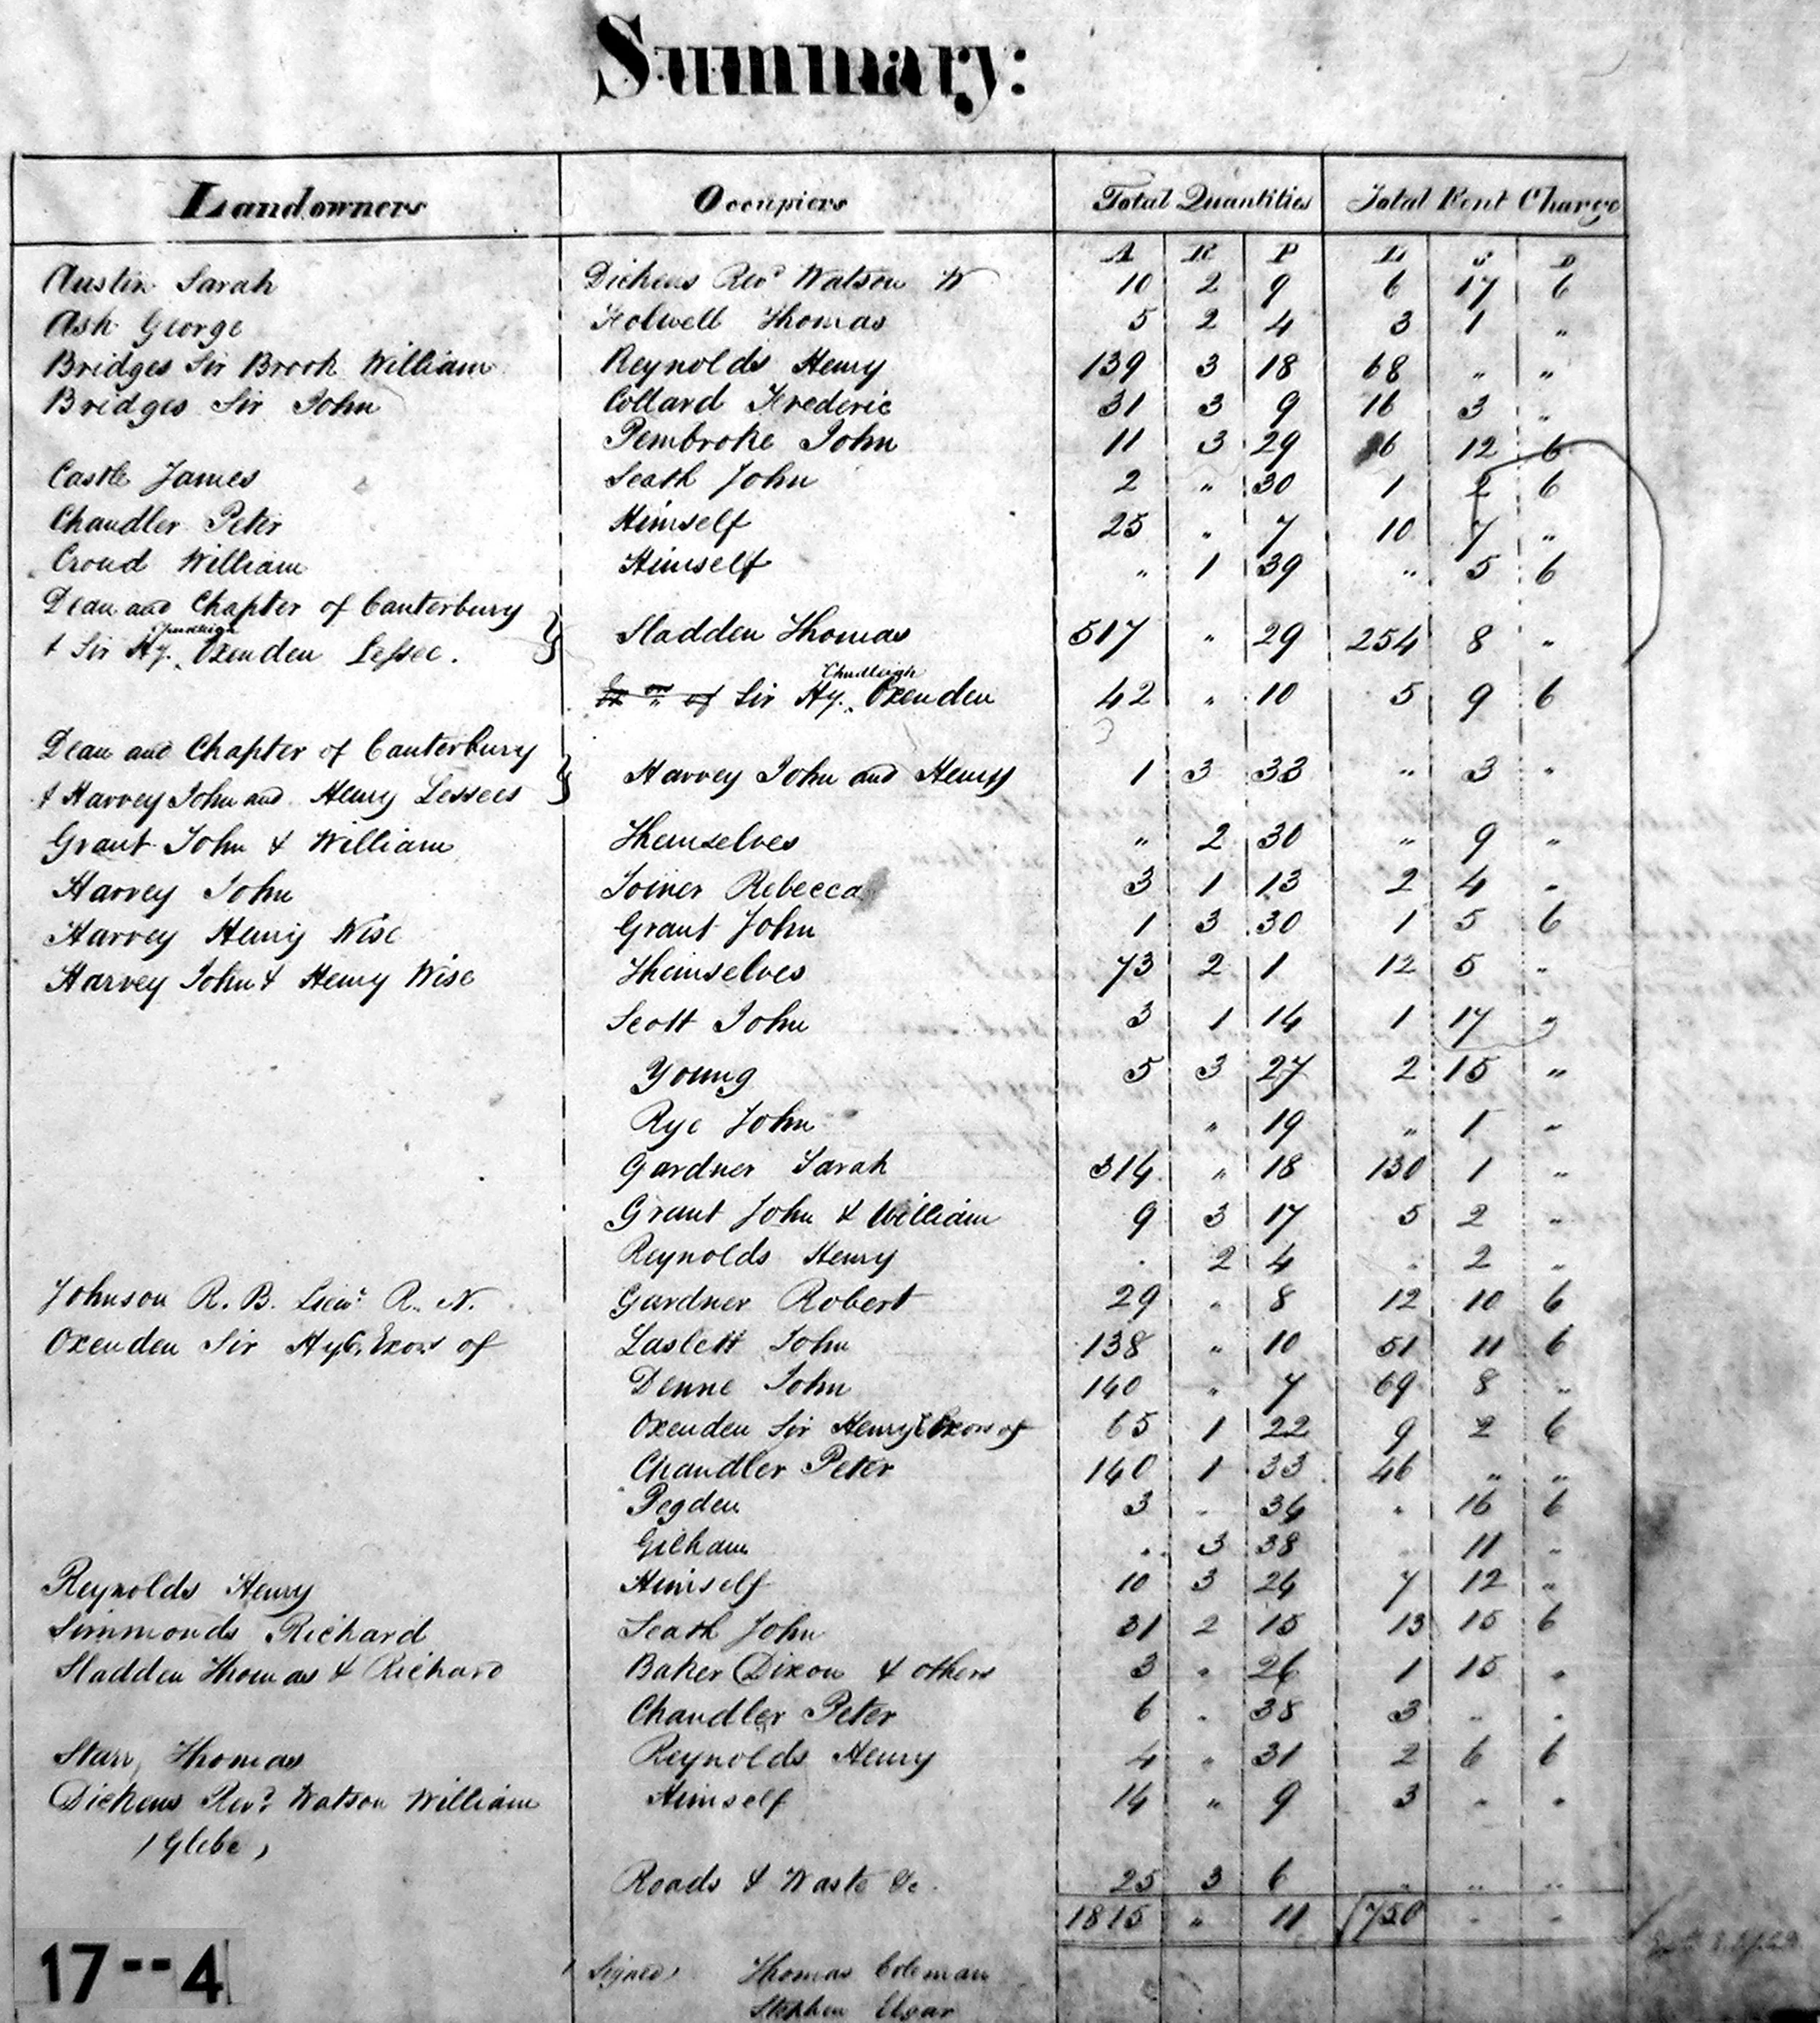 Summary:
Landowners Occupiers Total Quantities Total Rent Charge
A R P L S D
Austin Sarah Dickens Revd Watson W 10 2 9 6 17 6
Ash George Holwell Thomas 5 2 4 3 1 "
Bridges Sir Brook William Reynolds Henry 139 3 18 68 " "
Bridges Sir John Collard Frederic 31 3 9 16 3 "
Pembroke John 11 3 29 6 12 6
Castle James Seath John 2 " 30 1 2 6
Chandler Peter Himself 25 " 7 10 7 "
Croud William Himself " 1 39 " 5 6
Dean and Chapter of Canterbury
Chudleigh
& Sir Hy. Oxenden Lessee. } Sladden Thomas 517 " 29 254 8 "
Chudleigh
Sir Hy. Oxenden 42 " 10 5 9 6
Dean and Chapter of Canterbury
& Harvey John and Henry Lessees } Harvey John and Henry 1 3 33 " 3 "
Grant John & William Themselves " 2 30 " 9 "
Harvey John Joiner Rebecca 3 1 13 2 4 "
Harvey Henry Wise Grant John 1 3 30 1 5 6
Harvey John & Henry Wise Themselves 73 2 1 12 5 "
Scott John 3 1 14 1 17 "
Young 5 3 27 2 15 "
Rye John " 19 " 1 "
Gardner Sarah 314 " 18 130 1 "
Grant John & William 9 3 17 5 2 "
Reynolds Henry " 2 4 " 2 "
Johnson R. B. Lieut R. N. Gardner Robert 29 " 8 12 10 6
Oxenden Sir Hy C. Exors of Laslett John 138 " 10 51 11 6
Denne John 140 " 7 69 8 "
Oxenden Sir Henry C Exors of 65 1 22 9 2 6
Chandler Peter 140 1 33 46 " "
Pegden 3 " 34 " 16 6
Gilham " 3 38 " 11 "
Reynolds Henry Himself 10 3 24 7 12 "
Simmonds Richard Seath John 31 2 15 13 15 6
Sladden Thomas & Richard Baker Dixon & others 3 " 26 1 15 "
Chandler Peter 6 " 38 3 " "
Starr Thomas Reynolds Henry 4 " 31 2 6 6
Dickens Revd Watson William Himself 14 " 9 3 " "
(Glebe)
Roads & Waste &c. 25 3 6 " " "
1815 " 11 750 " "
Signed Thomas Coleman
Stephen Elgar
17--4